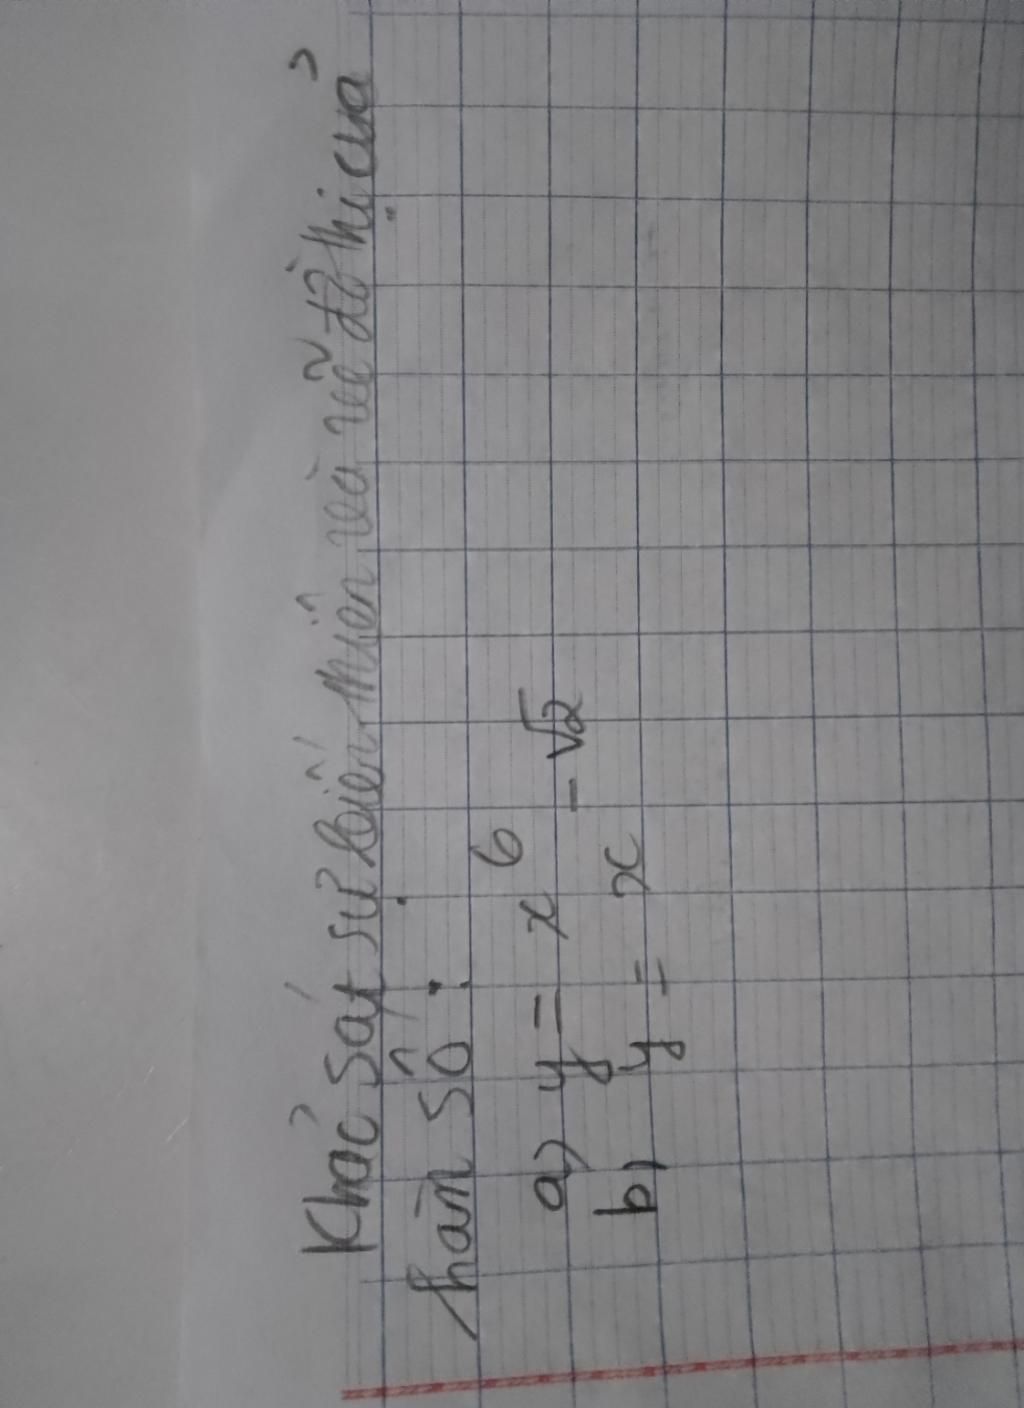 Khảo sát sự biến thiên và vẽ đồ thị của
hàm số :
a) y = x^6
b) y = x^{-√2}